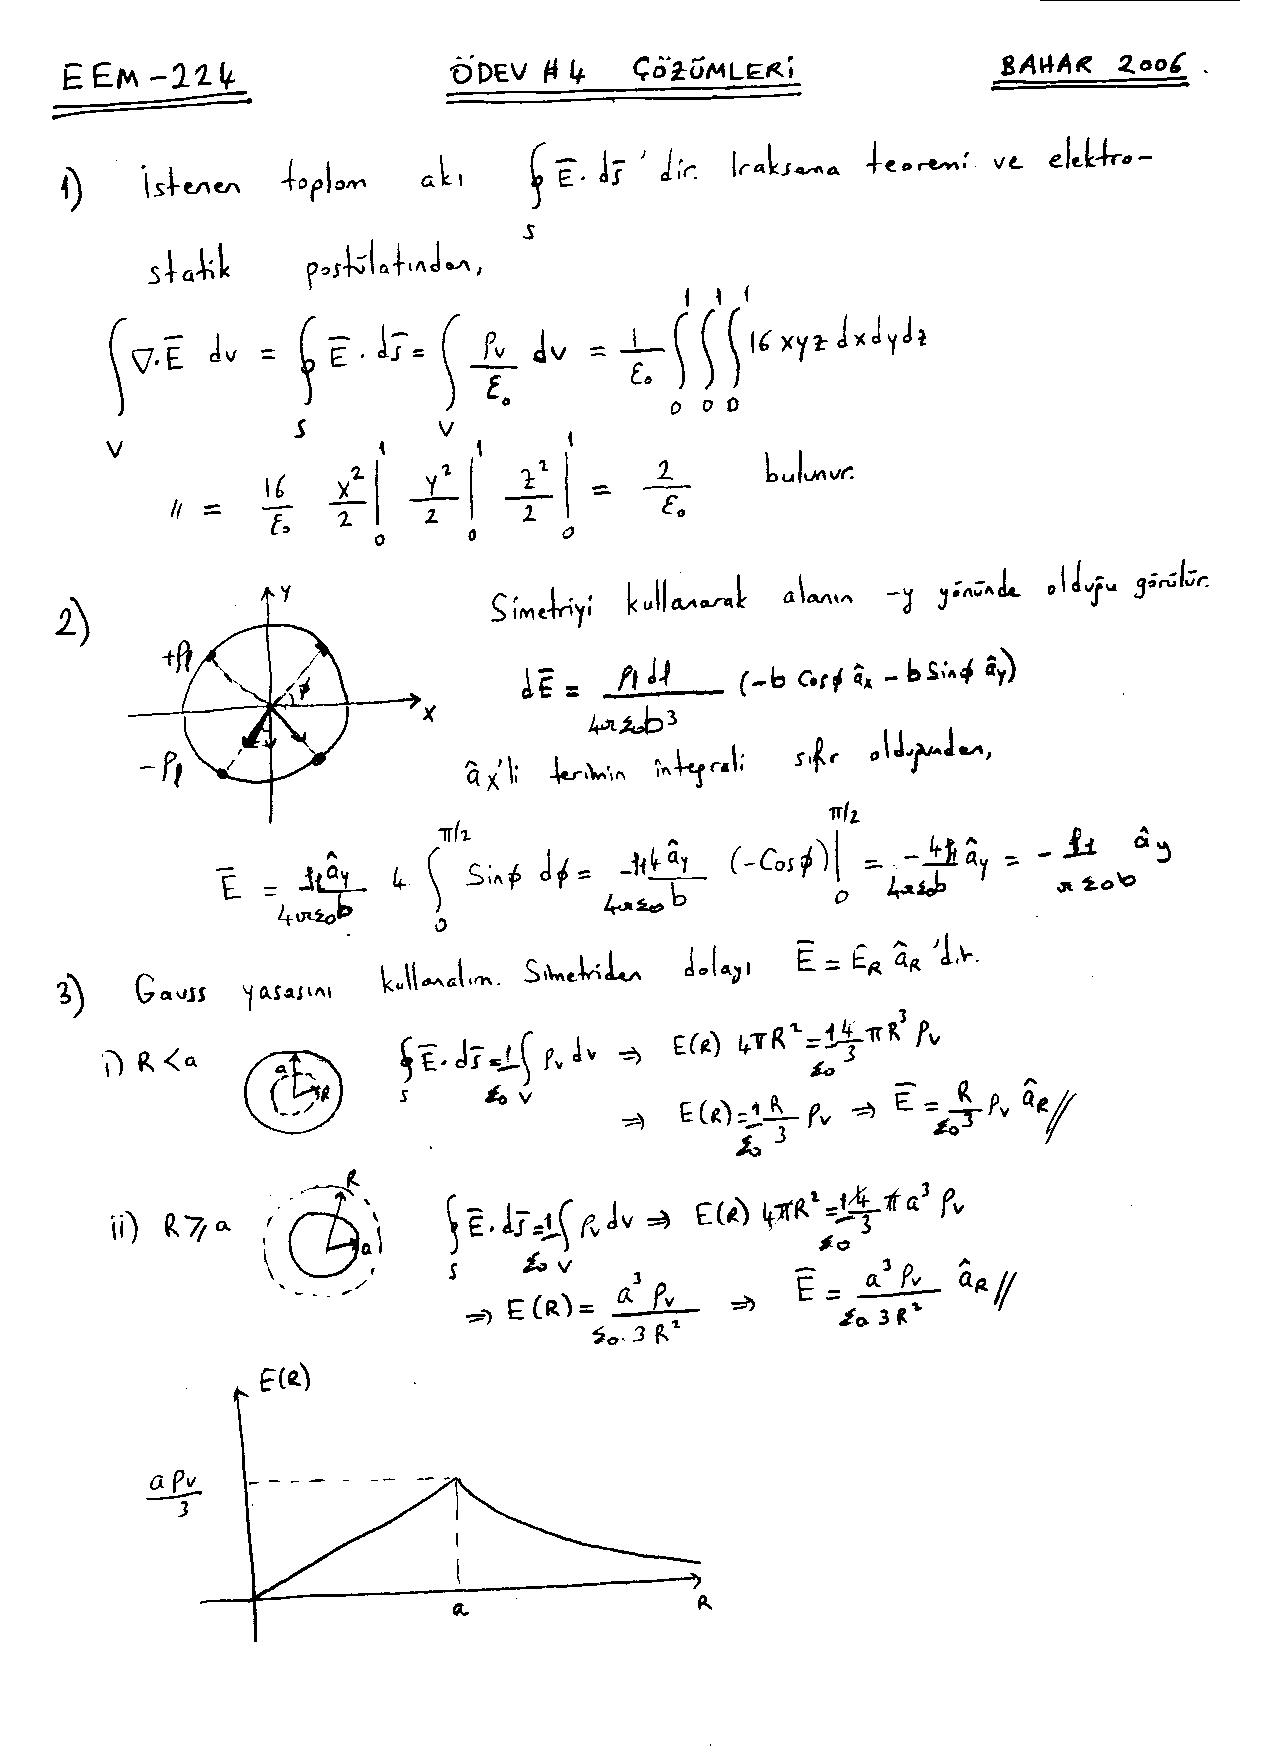 EEM-224 ÖDEV #4 ÇÖZÜMLERİ BAHAR 2006.
1) İstenen toplam akı ∮_S Ē·ds̄ 'dir. Iraksama teoremi ve elektro-
statik postülatından,
∫_V ∇·Ē dv = ∮_S Ē·ds̄ = ∫_V ρv/ε₀ dv = 1/ε₀ ∫₀¹∫₀¹∫₀¹ 16xyz dxdydz
〃 = 16/ε₀ x²/2|₀¹ y²/2|₀¹ z²/2|₀¹ = 2/ε₀ bulunur.
2) Simetriyi kullanarak alanın -y yönünde olduğu görülür.
y
+ρl
φ
x
-ρl
dĒ = ρl dl/4πε₀b³ (-b Cosφ âx - b Sinφ ây)
âx'li terimin integrali sıfır olduğundan,
Ē = -ρl ây/4πε₀b 4 ∫₀^{π/2} Sinφ dφ = -ρl 4 ây/4πε₀b (-Cosφ)|₀^{π/2} = -4ρl/4πε₀b ây = - ρl/πε₀b ây
3) Gauss yasasını kullanalım. Simetriden dolayı Ē = E_R â_R 'dir.
i) R<a
a
R
∮_S Ē·ds̄ = 1/ε₀ ∫_V ρv dv ⇒ E(R) 4πR² = 1/ε₀ 4/3 πR³ ρv
⇒ E(R) = 1/ε₀ R/3 ρv ⇒ Ē = R/ε₀3 ρv â_R //
ii) R⩾a
R
a
∮_S Ē·ds̄ = 1/ε₀ ∫_V ρv dv ⇒ E(R) 4πR² = 1/ε₀ 4/3 πa³ ρv
⇒ E(R) = a³ρv/ε₀.3R² ⇒ Ē = a³ρv/ε₀3R² â_R //
E(R)
aρv/3
a
R